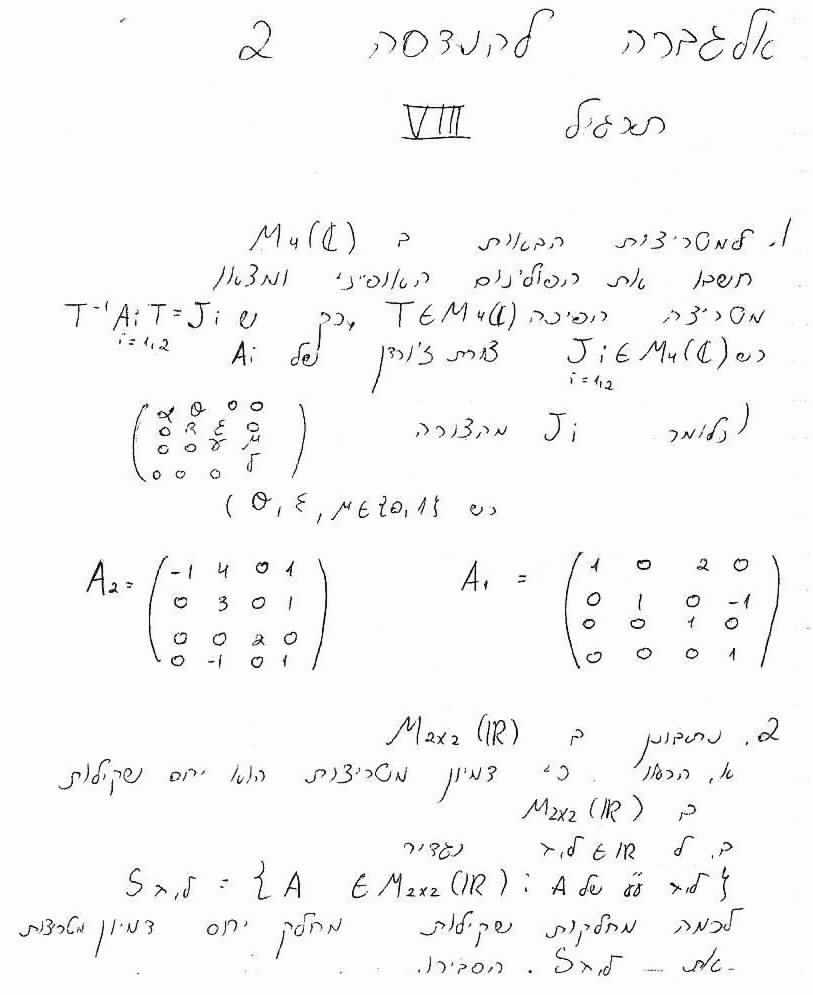 אלגברה להנדסה 2
תרגיל VIII
1. למטריצות הבאות ב M₄(ℂ)
חשבו את הפולינום האופייני ומצאו
מטריצה הפיכה T∈M₄(ℂ) כך ש T⁻¹AᵢT=Jᵢ i=1,2
כש Jᵢ∈M₄(ℂ) i=1,2 צורת ז'ורדן של Aᵢ
(כלומר Jᵢ מהצורה
( α θ 0 0
0 ε 0
0 0 γ μ
0 0 0 δ )
כש θ, ε, μ∈{0,1} )
A₁ = ( 1 0 2 0
0 1 0 -1
0 0 1 0
0 0 0 1 )
A₂ = ( -1 4 0 1
0 3 0 1
0 0 2 0
0 -1 0 1 )
2. נתבונן ב M₂ₓ₂(ℝ)
א. הראו כי דמיון מטריצות הוא יחס שקילות
ב M₂ₓ₂(ℝ)
ב. ל ∈ ℝ נגדיר
S = { A ∈ M₂ₓ₂(ℝ) : של A }
לכמה מחלקות שקילות מחלק יחס דמיון מטריצות
את S. הסבירו.